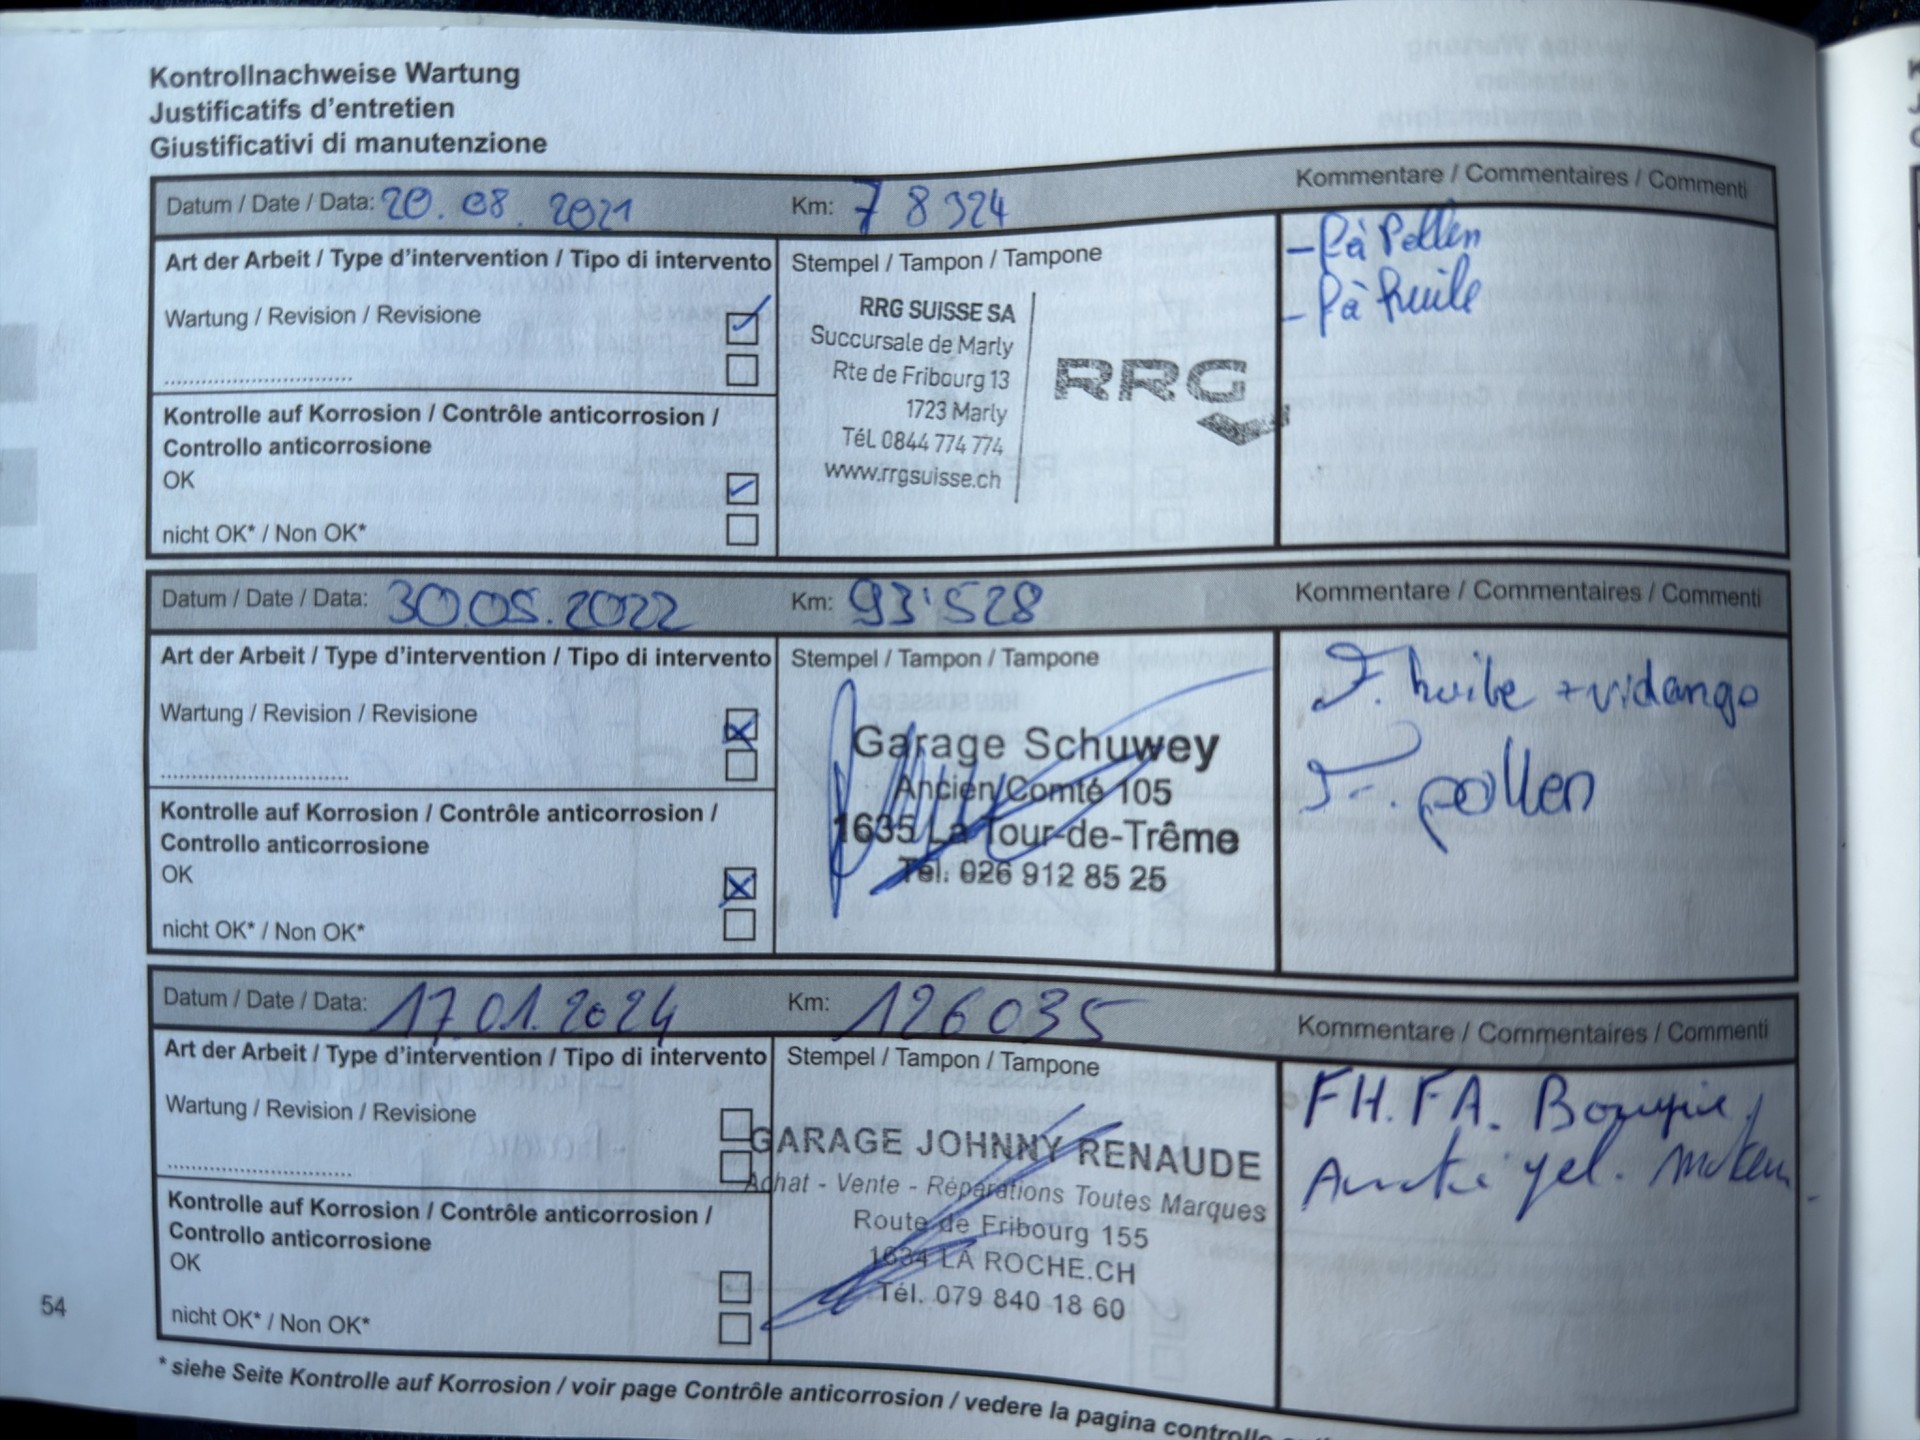 Kontrollnachweise Wartung
Justificatifs d'entretien
Giustificativi di manutenzione
Datum / Date / Data: 20.08.2021 Km: 78324 Kommentare / Commentaires / Commenti
Art der Arbeit / Type d'intervention / Tipo di intervento
Wartung / Revision / Revisione
Kontrolle auf Korrosion / Contrôle anticorrosion /
Controllo anticorrosione
OK
nicht OK* / Non OK*
Stempel / Tampon / Tampone
RRG SUISSE SA
Succursale de Marly
Rte de Fribourg 13
1723 Marly
Tél. 0844 774 774
www.rrgsuisse.ch
RRG
- fà Pollen
- fà huile
Datum / Date / Data: 30.05.2022 Km: 93'528 Kommentare / Commentaires / Commenti
Art der Arbeit / Type d'intervention / Tipo di intervento
Wartung / Revision / Revisione
Kontrolle auf Korrosion / Contrôle anticorrosion /
Controllo anticorrosione
OK
nicht OK* / Non OK*
Stempel / Tampon / Tampone
Garage Schuwey
Ancien Comté 105
1635 La Tour-de-Trême
Tél. 026 912 85 25
F. huile + vidange
F. pollen
Datum / Date / Data: 17.01.2024 Km: 126035 Kommentare / Commentaires / Commenti
Art der Arbeit / Type d'intervention / Tipo di intervento
Wartung / Revision / Revisione
Kontrolle auf Korrosion / Contrôle anticorrosion /
Controllo anticorrosione
OK
nicht OK* / Non OK*
Stempel / Tampon / Tampone
GARAGE JOHNNY RENAUDE
Achat - Vente - Réparations Toutes Marques
Route de Fribourg 155
1634 LA ROCHE.CH
Tél. 079 840 18 60
FH. FA. Bougie,
gel. moteur
54
* siehe Seite Kontrolle auf Korrosion / voir page Contrôle anticorrosion / vedere la pagina controllo